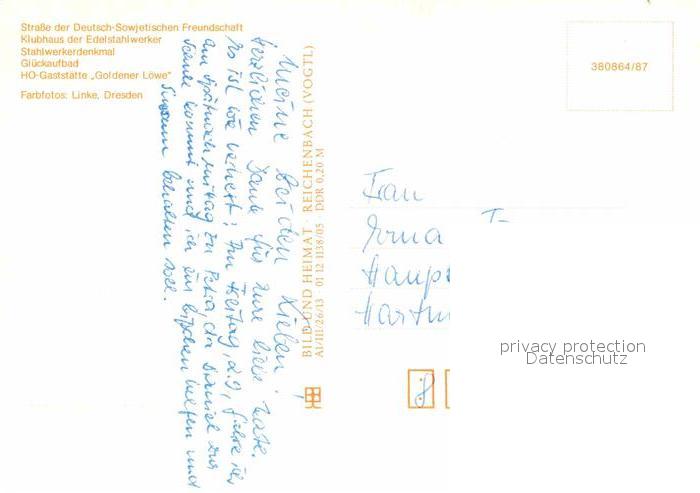 Straße der Deutsch-Sowjetischen Freundschaft
Klubhaus der Edelstahlwerker
Stahlwerkerdenkmal
Glückaufbad
HO-Gaststätte „Goldener Löwe"
Farbfotos: Linke, Dresden
380864/87
Meine beiden Lieben!
Herzlichen Dank für Eure liebe Karte.
Es ist wie verhext! Am Freitag, d. 2.9, fahre ich
am Spätnachmittag zu Petra, da Daniel zur
Schule kommt und ich ein bißchen helfen und
behalten soll.
BILD UND HEIMAT · REICHENBACH (VOGTL)
A1/III/26/13 · 01 12 1138/05 DDR 0,20 M
Frau
Erna
Haupt
Hartm
privacy protection
Datenschutz
8